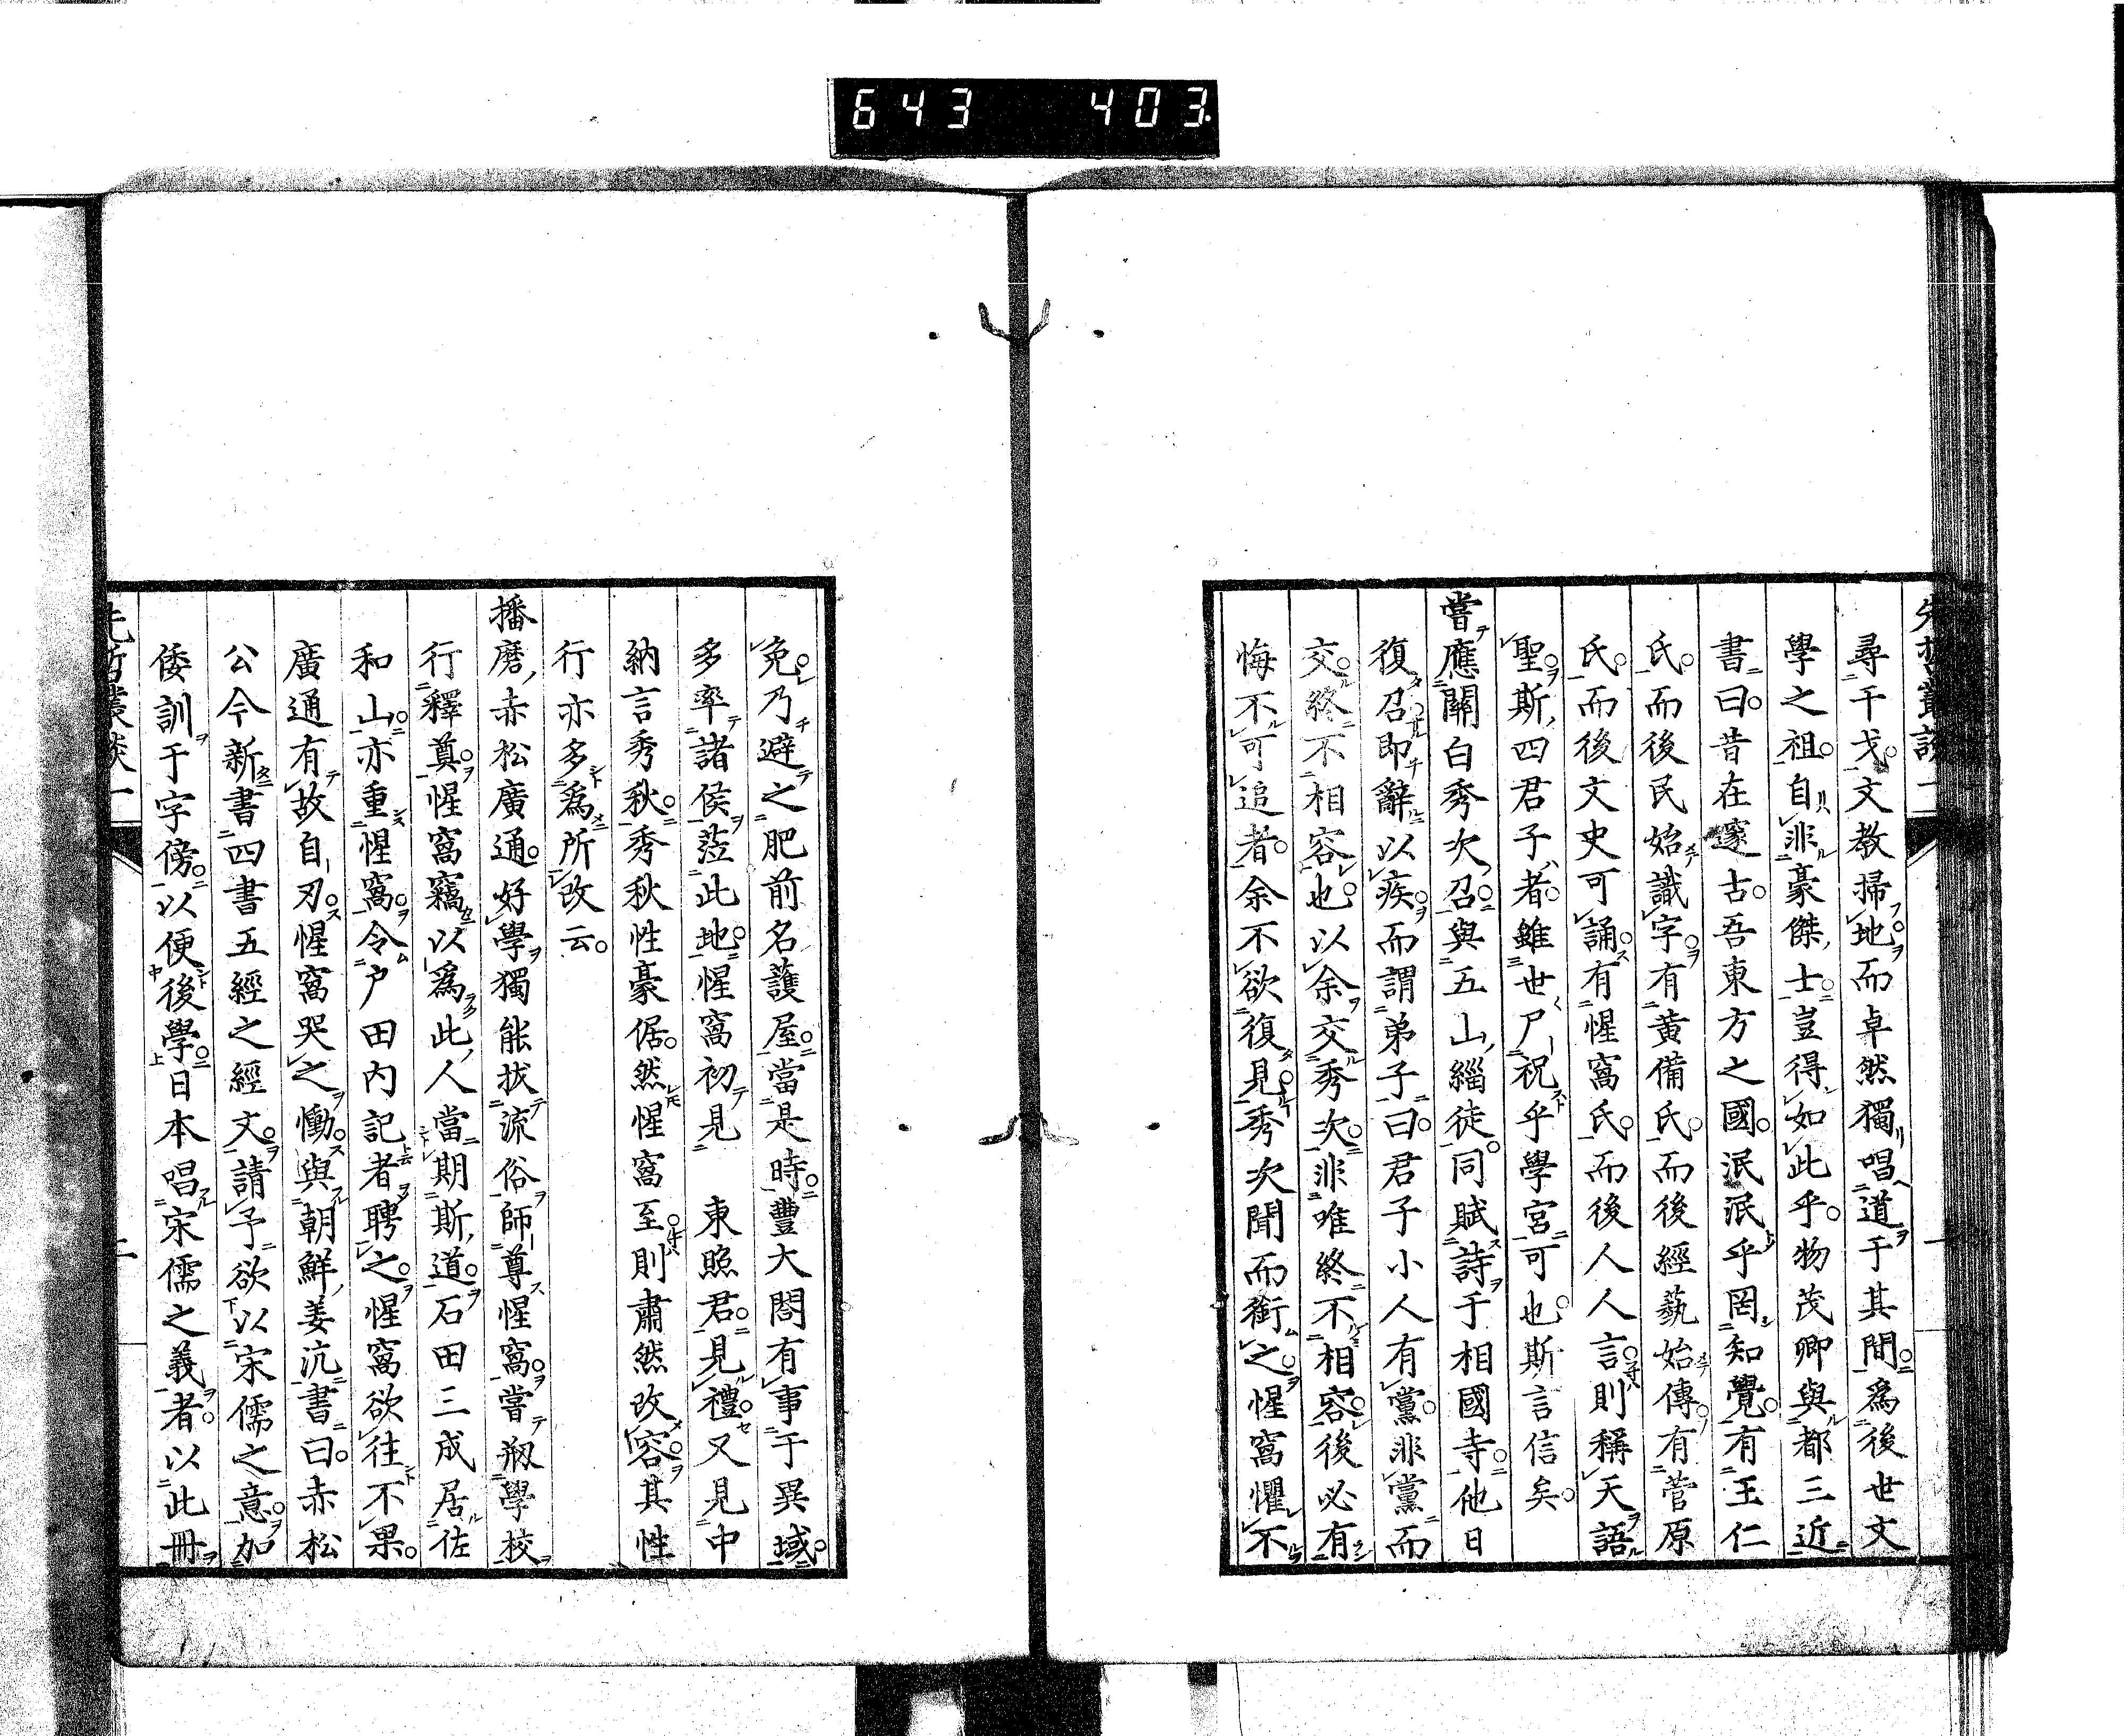 643 403
先哲叢談一
尋干戈。文教掃地。而卓然獨唱道于其間。爲後世文
學之祖。自非豪傑士。豈得如此乎。物茂卿與都三近
書曰。昔在邃古。吾東方之國。泯泯乎罔知覺。有王仁
氏。而後民始識字。有黃備氏。而後經藝始傳。有菅原
氏。而後文史可誦。有惺窩氏。而後人人言則稱天語
聖。斯四君子者。雖世尸祝乎學宮可也。斯言信矣。
嘗應關白秀次召。與五山緇徒。同賦詩于相國寺。他日
復召。即辭以疾。而謂弟子曰。君子小人有黨。非黨而
交。終不相容也。以余交秀次。非唯終不相容。後必有
悔不可追者。余不欲復見。秀次聞而銜之。惺窩懼不
免。乃避之肥前名護屋。當是時。豐大閤有事于異域。
多率諸侯蒞此地。惺窩初見 東照君。見禮。又見中
納言秀秋。秀秋性豪倨。然惺窩至則肅然改容。其性
行亦多爲所改云。
播磨赤松廣通。好學獨能拔流俗。師尊惺窩。嘗剏學校
行釋奠。惺窩竊以爲此人當期斯道。石田三成居佐
和山。亦重惺窩。令户田内記者聘之。惺窩欲往不果。
廣通有故自刃。惺窩哭之慟。與朝鮮姜沆書曰。赤松
公今新書四書五經之經文。請予欲以宋儒之意。加
倭訓于字傍。以便後學。日本唱宋儒之義者。以此冊
先哲叢談一
二